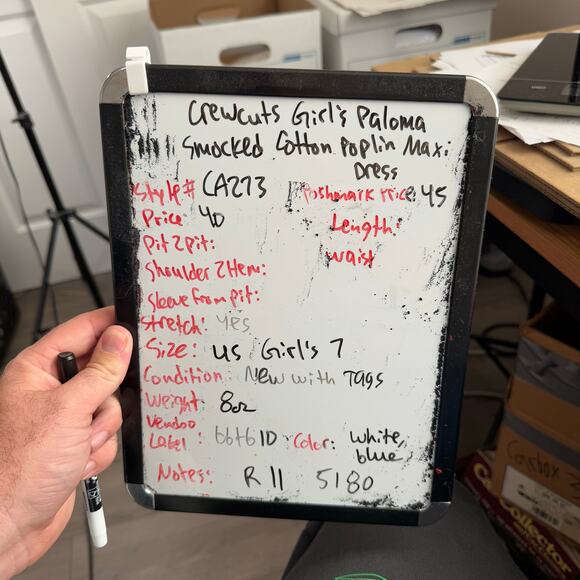 Crewcuts Girl's Paloma
Smocked Cotton Poplin Maxi
Dress
Style# CA273 Poshmark Price: 45
Price 40 Length:
Pit 2 pit: Waist
Shoulder 2 Hem:
Sleeve from pit:
Stretch: yes
Size: US Girl's 7
Condition New with Tags
Weight 8oz
Vendoo
Label: 66f61D Color: white,
blue
Notes: R11 5180
Collector